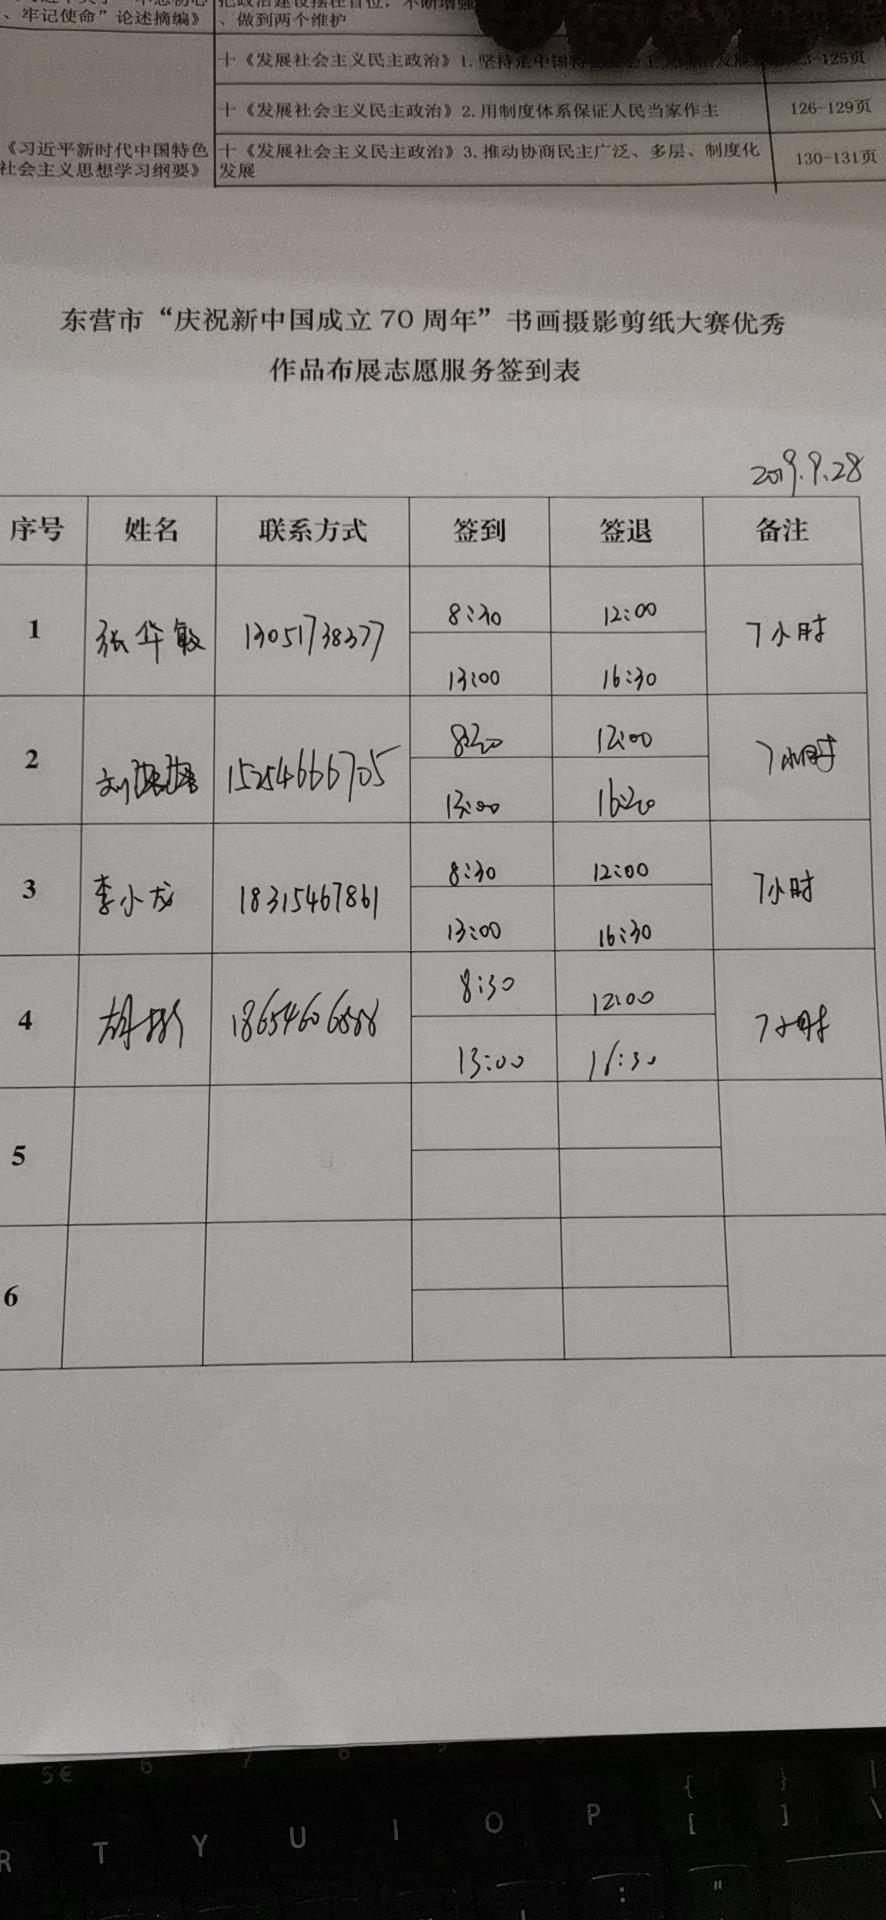 、牢记使命”论述摘编》
、做到两个维护
十《发展社会主义民主政治》1.坚持走中国
十《发展社会主义民主政治》2.用制度体系保证人民当家作主
126-129页
《习近平新时代中国特色
社会主义思想学习纲要》
十《发展社会主义民主政治》3.推动协商民主广泛、多层、制度化
发展
130-131页
东营市“庆祝新中国成立 70 周年”书画摄影剪纸大赛优秀
作品布展志愿服务签到表
2019.9.28
序号 姓名 联系方式 签到 签退 备注
1 张华敏 13051738377 8:30 12:00 7小时
13:00 16:30
2 刘 15254666705 8:30 12:00 7小时
13:00 16:30
3 李小龙 18315467861 8:30 12:00 7小时
13:00 16:30
4 胡 8:30 12:00 7小时
13:00 16:30
5
6
5 € 6 7 8
R T Y U I O P { [ } ] | \
: "